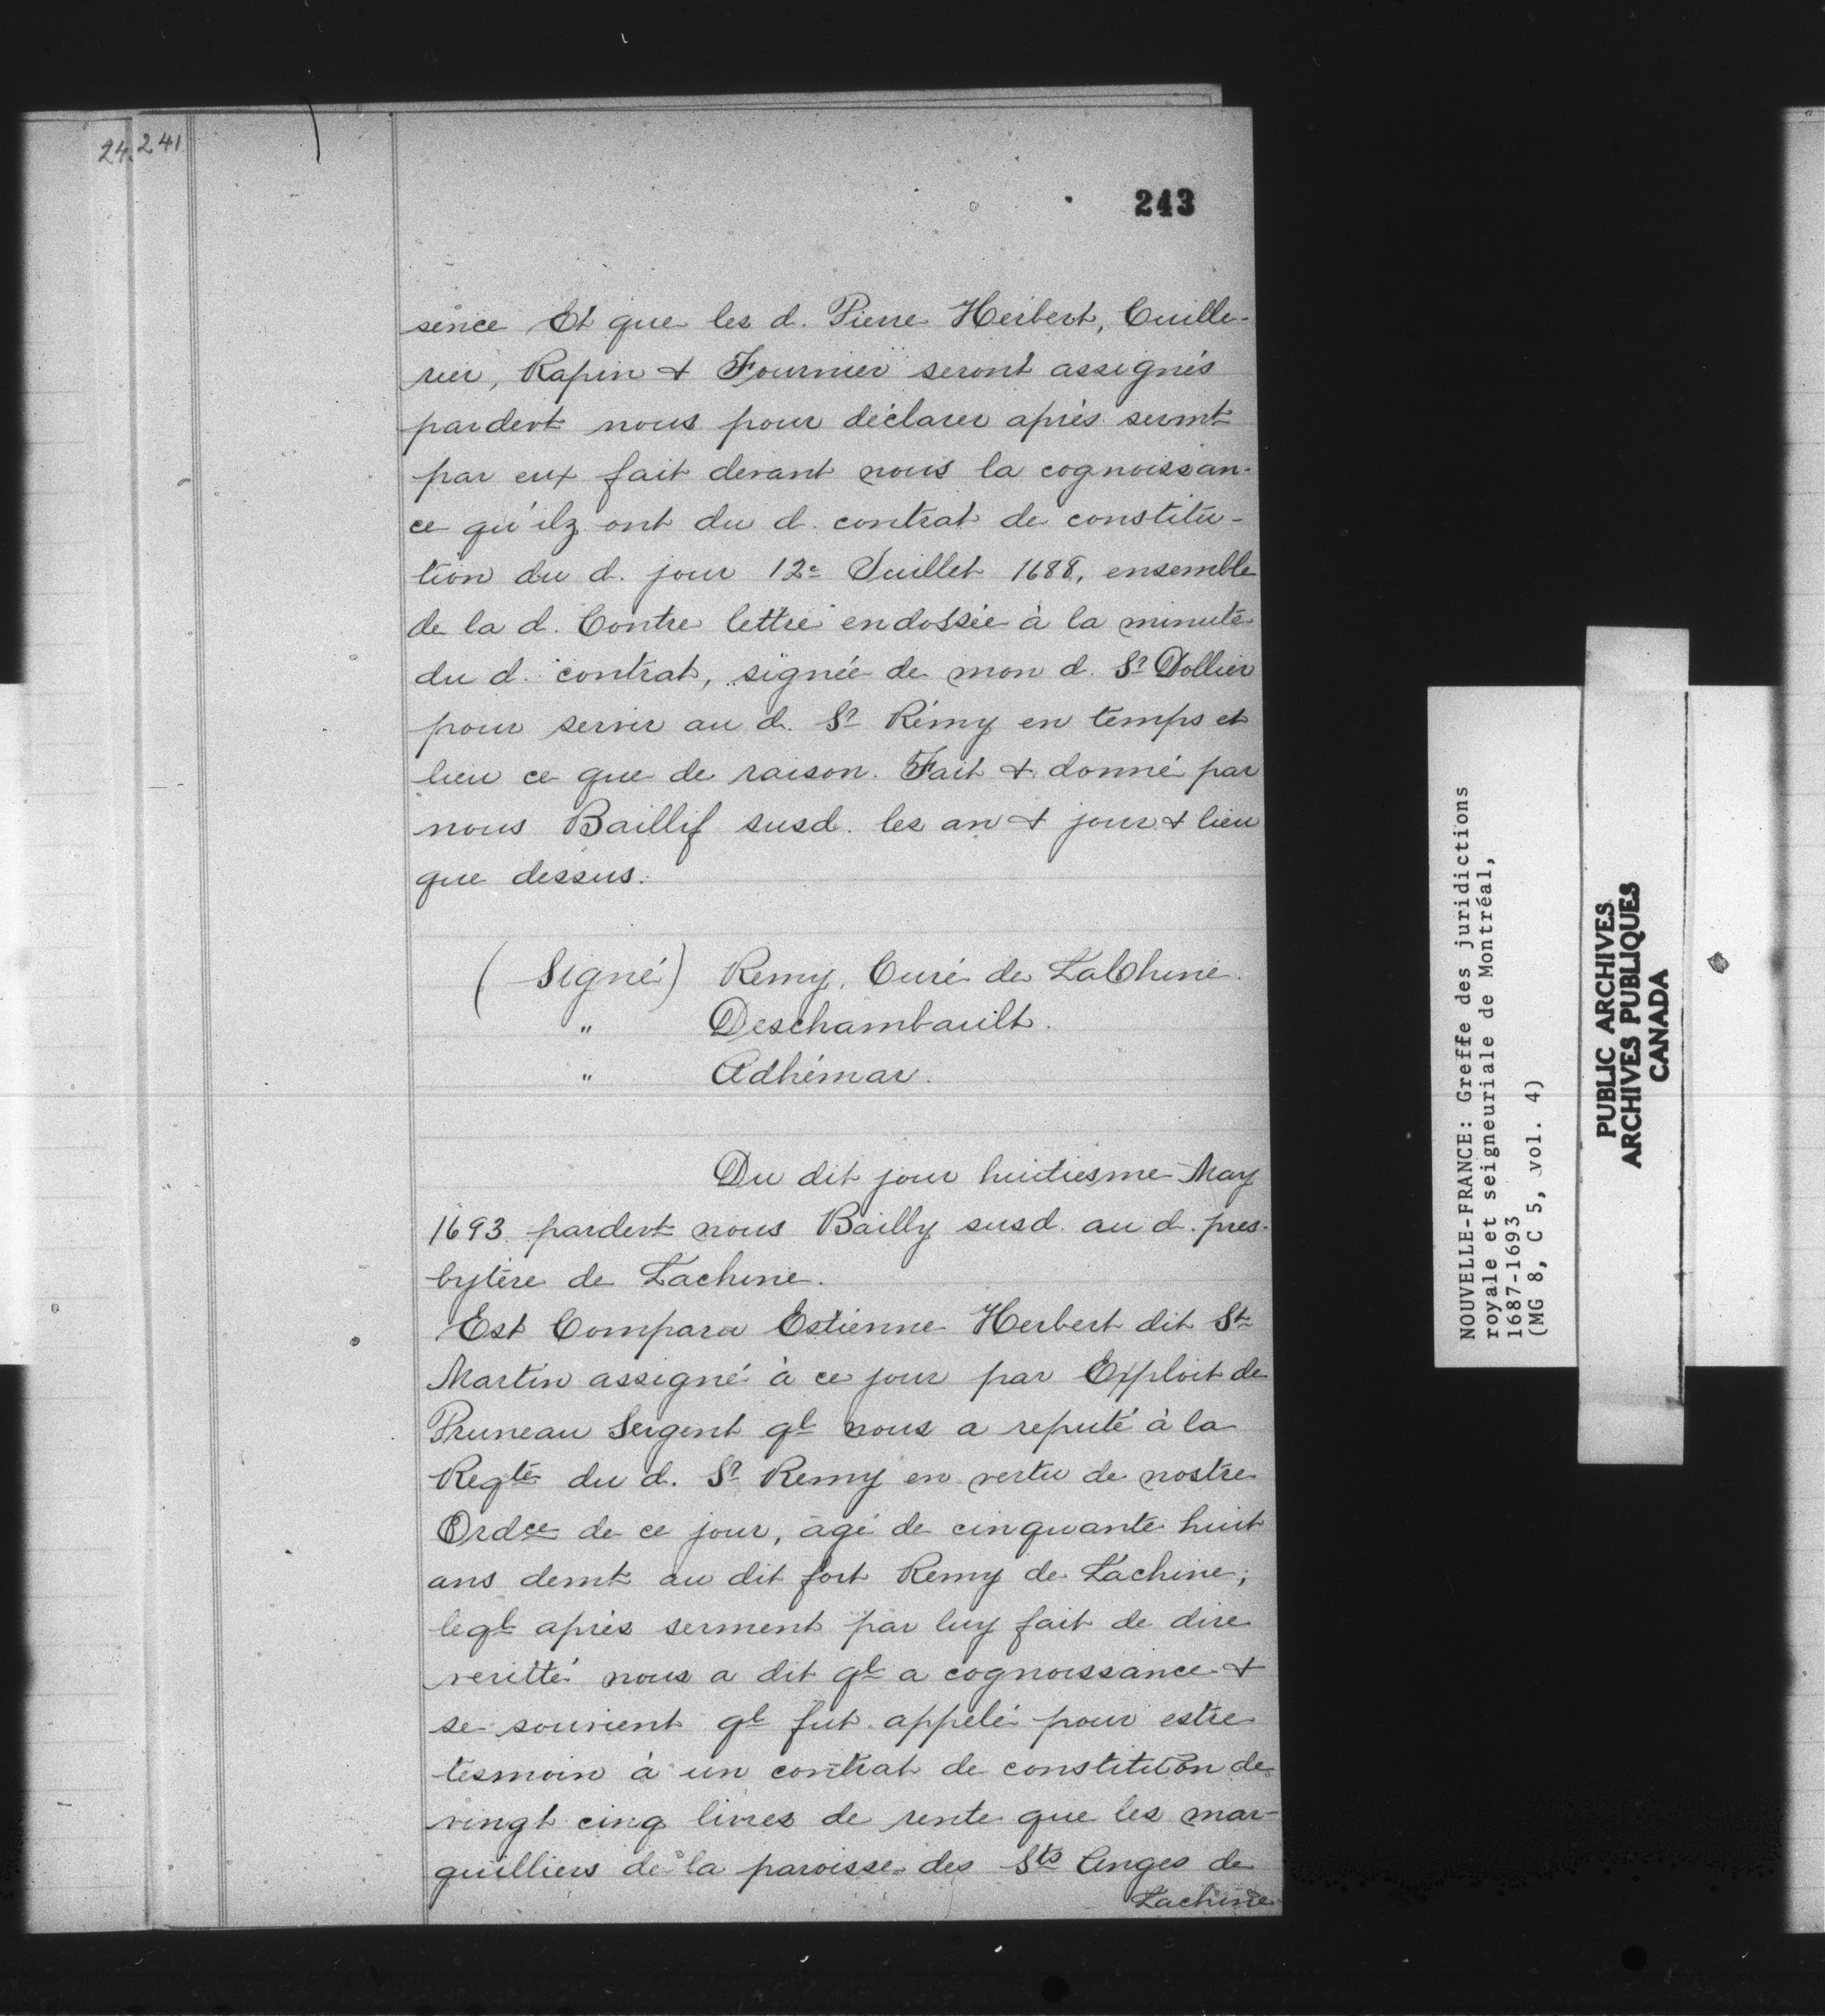 24
241
243
sence Et que les d. Pierre Herbert, Cuille-
rier, Rapin & Fournier seront assignés
pardevt nous pour déclarer après sermt
par eux fait devant nous la cognoissan-
ce qu'ilz ont du d. contrat de constitu-
tion du d. jour 12e Juillet 1688, ensemble
de la d. Contre lettre endossée à la minute
du d. contrat, signée de mon d. Sr Dollier
pour servir au d. Sr Rémy en temps et
lieu ce que de raison. Fait & donné par
nous Baillif susd. les an & jour & lieu
que dessus.
(Signé) Remy, Curé de LaChine.
" Deschambault.
" Adhémar.
Du dit jour huitiesme May
1693 pardevt nous Bailly susd. au d. pres-
bytère de Lachine.
Est Comparu Estienne Herbert dit St
Martin assigné à ce jour par Exploit de
Pruneau Sergent ql nous a reputé à la
Reqte du d. Sr Remy en vertu de nostre
Ordce de ce jour, âgé de cinquante huit
ans demt au dit fort Remy de Lachine,
leql après serment par luy fait de dire
veritté nous a dit ql a cognoissance &
se souvient ql fut appelé pour estre
tesmoin à un contrat de constitution de
vingt cinq livres de rente que les mar-
guilliers de la paroisse des Sts Anges de
Lachine
NOUVELLE-FRANCE: Greffe des juridictions
royale et seigneuriale de Montréal,
1687-1693
(MG 8, C 5, vol. 4)
PUBLIC ARCHIVES
ARCHIVES PUBLIQUES
CANADA